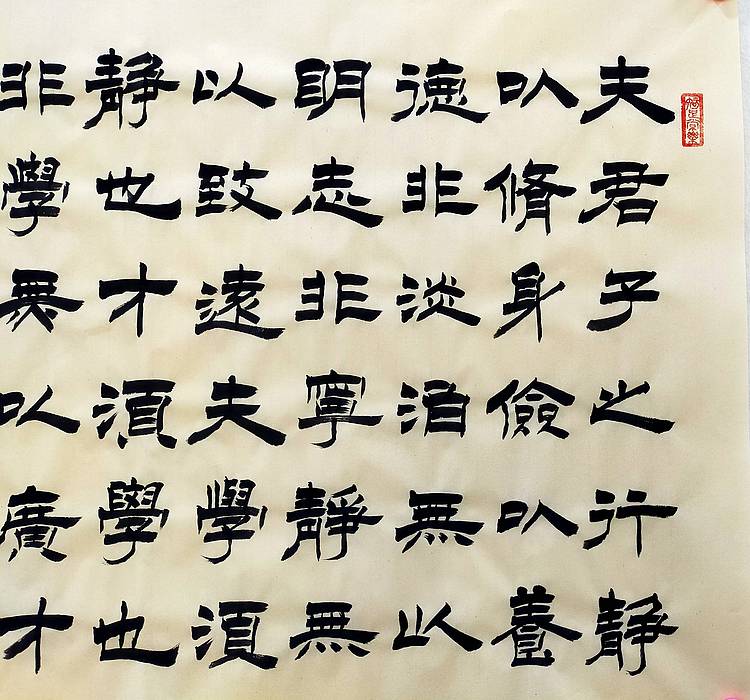 夫君子之行静
以脩身儉以養
德非淡泊無以
明志非寧靜無
以致遠夫學須
靜也才須學也
非學無以廣才